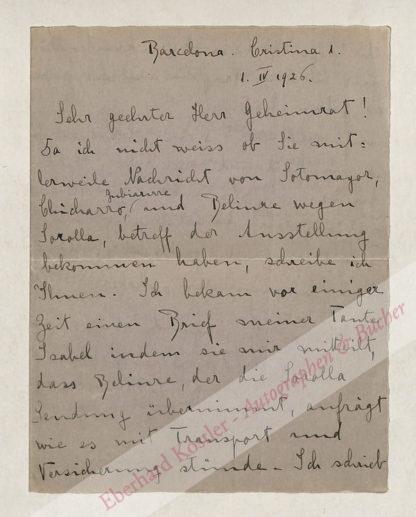 Barcelona. Cristina 1.
1. IV 1926.
Sehr geehrter Herr Geheimrat!
Da ich nicht weiss ob Sie mit=
lerweile Nachricht von Sotomayor,
Zubiaurre
Chicharro, und Benlinre wegen
Sorolla, betreff der Ausstellung
bekommen haben, schreibe ich
Ihnen. Ich bekam vor einiger
Zeit einen Brief meiner Tante
Isabel indem sie mir mitteilt,
dass Belinre, der die Sorolla
Sendung übernimmt, anfrägt
wie es mit Transport und
Versicherung stünde. Ich schrieb
Eberhard Köstler - Autographen & Bücher